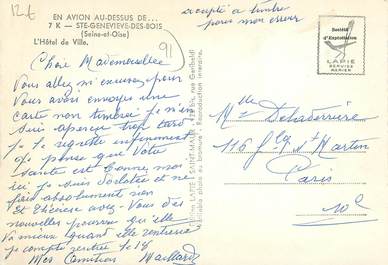 12.€
EN AVION AU-DESSUS DE...
7 K — STE-GENEVIÈVE-DES-BOIS
(Seine-et-Oise)
L'Hôtel de Ville.
91
accepté à timbre
pour mon erreur
Société
d'Exploitation
LAPIE
SERVICE
AERIEN
Chère Mademoiselle
Vous allez m'excuser pour
Vous avoir envoyer une
Carte non timbrée je m'en
suis aperçu trop tard
je le regrette infiniment
je pense que Votre
santé est bonne moi
ici je suis dorlotée et ne
fais absolument rien
et Thérèse avez-Vous des
nouvelles pourvu qu'elle
Va mieux quand elle rentrera
je compte rentrer le 18
Mes Amitiés Maillard
LAPIE SAINT-MAUR
rue Garibaldi
Véritable photo au bromure - Reproduction interdite.
Mlle Deladerrière
116 fbg St Martin
Paris
10e